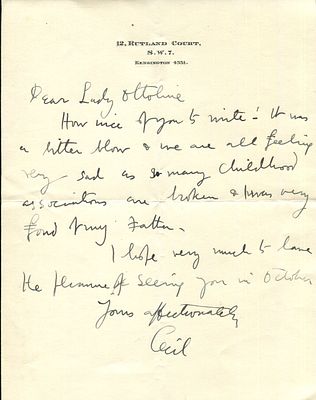 12, RUTLAND COURT,
S.W.7.
KENSINGTON 4551.
Dear Lady Ottoline
How nice of you to write! It was
a bitter blow & we are all feeling
very sad as so many childhood
associations are broken & I was very
fond of my Father.
I hope very much to have
the pleasure of seeing you in October
Yours affectionately
Cecil